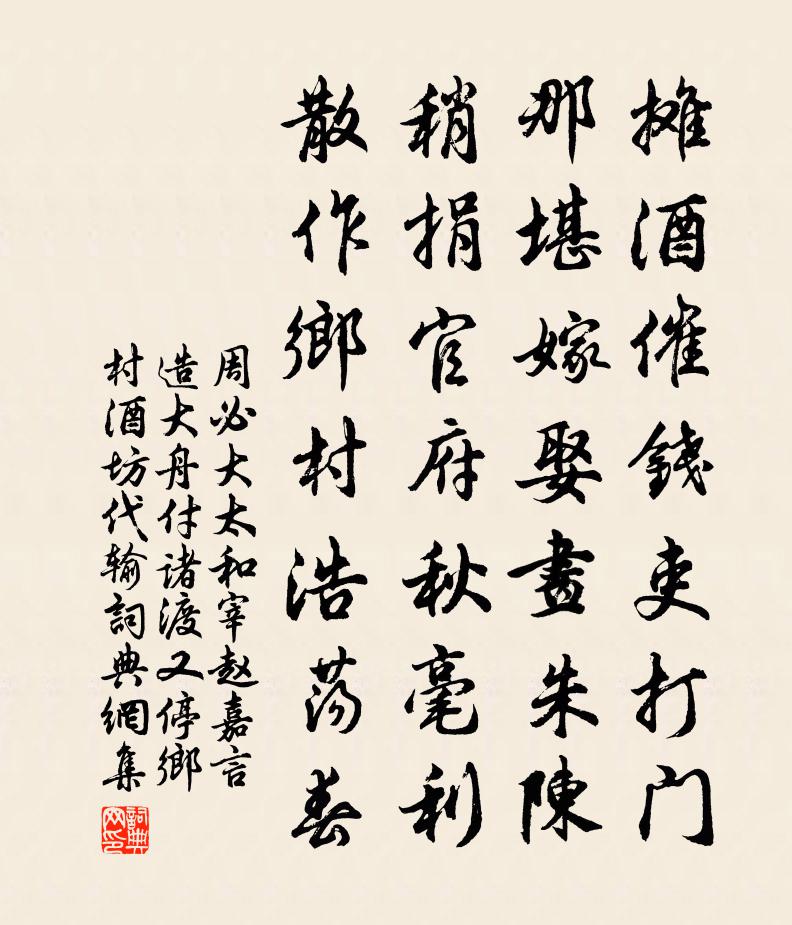 攤酒催錢吏打門
那堪嫁娶畫朱陳
稍捐官府秋毫利
散作鄉村浩蕩春
周必大太和宰赵嘉言
造大舟付诸渡又停鄉
村酒坊代输詞典網集
詞典
网印